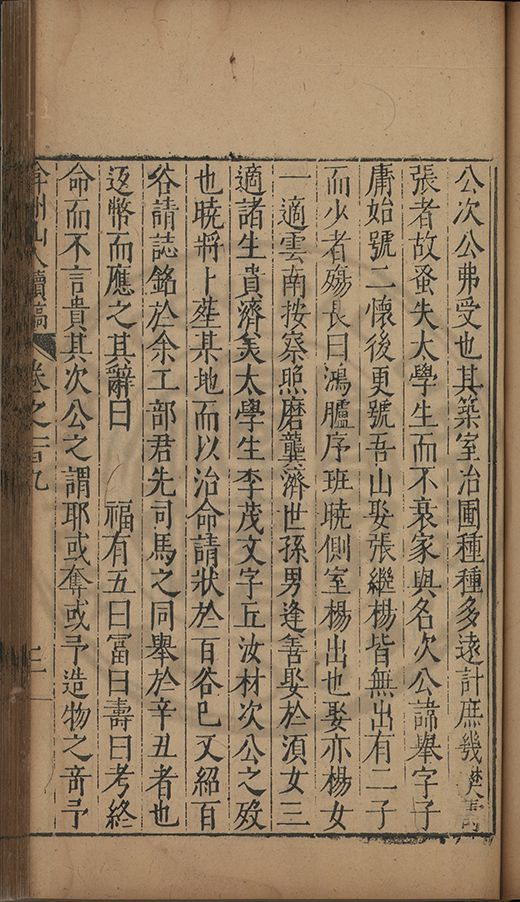 公次公弗受也其築室治圃種種多遠計庶幾
張者故蚤失太學生而不衰家與名次公諱舉字子
庸始號二懷後更號吾山娶張繼楊皆無出有二子
而少者殤長曰鴻臚序班曉側室楊出也娶亦楊女
一適雲南按察照磨龔濟世孫男逢善娶於湏女三
適諸生貴濟美太學生李茂文字丘汝材次公之歿
也曉將卜𦵏某地而以治命請狀於百谷巳又紹百
谷請誌銘於余工部君先司馬之同舉於辛丑者也
迓幣而應之其辭曰 福有五曰富曰壽曰考終
命而不言貴其次公之謂耶或奪或予造物之竒予
弇州山人續稿 卷之一百九